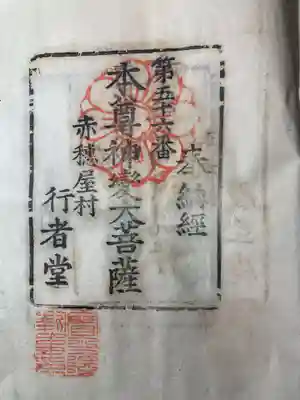 奉納經
第五十六番
本尊神變大菩薩
赤穂屋村
行者堂